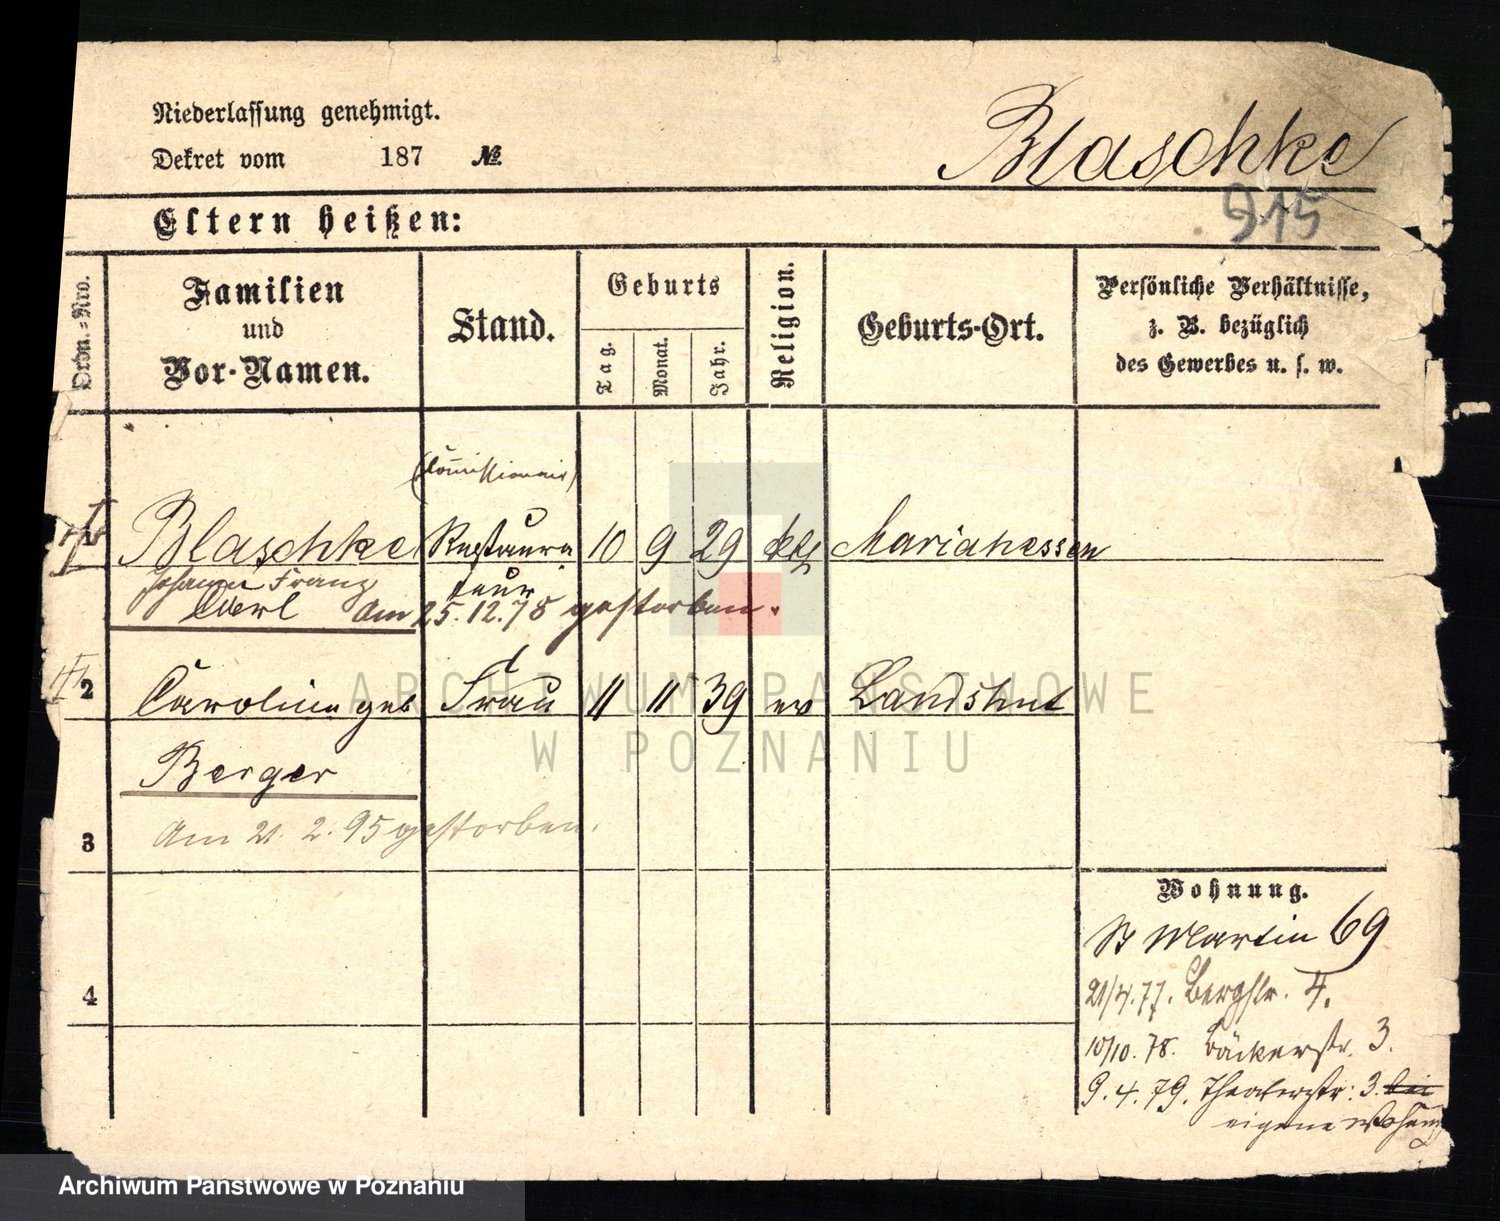 Niederlassung genehmigt.
Dekret vom 187 №
Blaschke
915
Eltern heißen:
Ordn.=Nro.
Familien
und
Vor-Namen.
Stand.
Geburts
Tag.
Monat.
Jahr.
Religion.
Geburts-Ort.
Persönliche Verhältnisse,
z. B. bezüglich
des Gewerbes u. s. w.
(Commissionair)
Blaschke Restaura 10 9 29 kth Marianessen
Johann Franz teur
Carl Am 25.12.78 gestorben.
2 Caroline geb Frau 11 11 39 ev Landshut
Berger
3 Am 21. 2. 95 gestorben.
4
Wohnung.
St Martin 69
21/4.77. Bergstr. 4.
10/10. 78. Bäckerstr. 3.
9. 4. 79. Theaterstr: 3. bei
eigene Wohng
ARCHIWUM PAŃSTWOWE
W POZNANIU
Archiwum Państwowe w Poznaniu